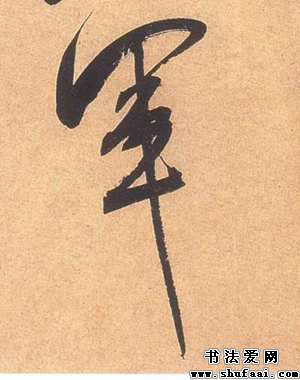 軍
书法爱网
www.shufaai.com